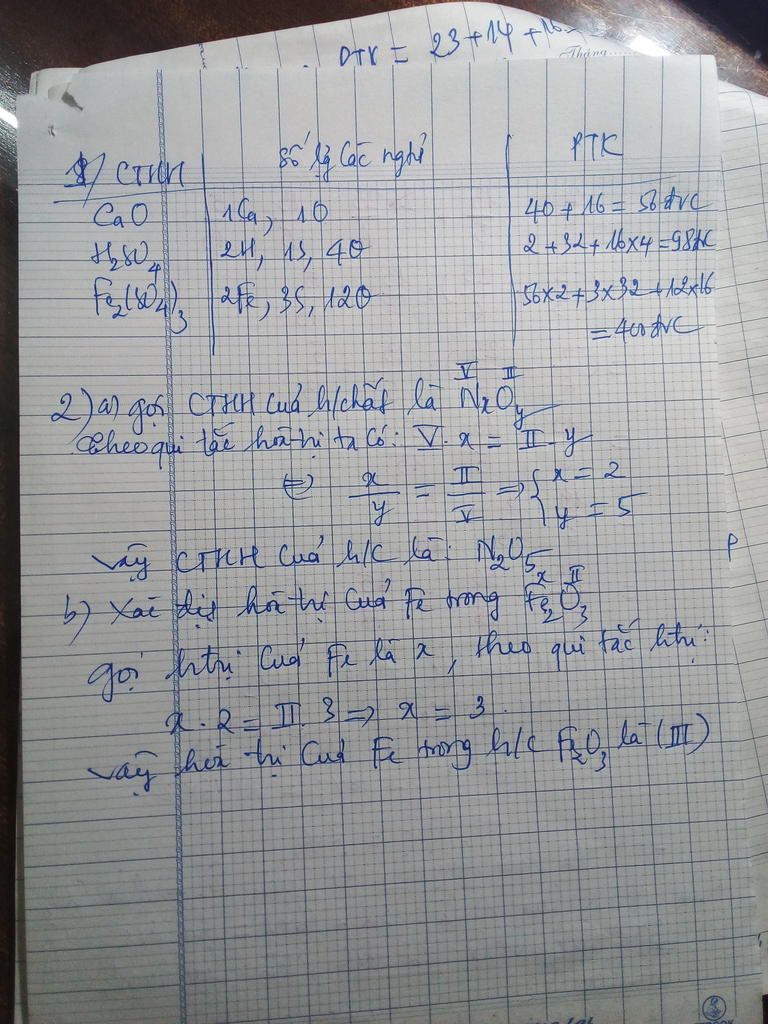 PTK = 23 + 14 + 16
Tháng.....
1/ CTHH | Số lg các ngtử | PTK
CaO | 1Ca, 1O | 40 + 16 = 56 đvC
H₂SO₄ | 2H, 1S, 4O | 2 + 32 + 16x4 = 98đvC
Fe₂(SO₄)₃ | 2Fe, 3S, 12O | 56x2 + 3x32 + 12x16
= 400đvC
V III
2) a) gọi CTHH của h/chất là NxOy
theo qui tắc hoá trị ta có: V. x = II. y
⇔ x/y = II/V ⇒ { x = 2
y = 5
Vậy CTHH của h/c là: N₂O₅
x II
b) Xác địh hoá trị của Fe trong Fe₂O₃
gọi htrị của Fe là x, theo qui tắc htrị:
x. 2 = II. 3 ⇒ x = 3.
Vậy hoá trị của Fe trong h/c Fe₂O₃ là (III)